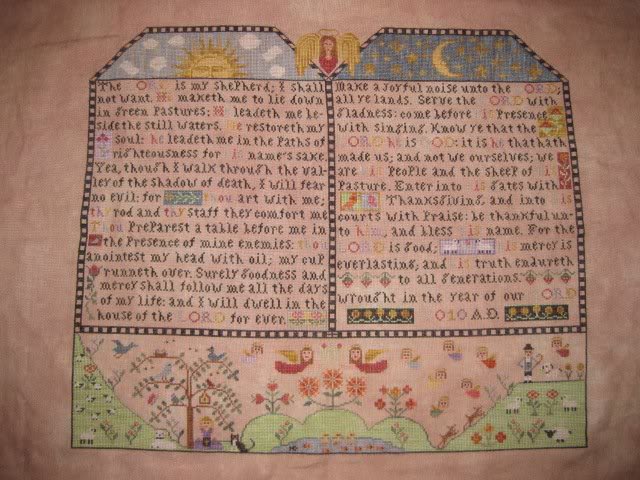 The LORD is my shepherd; I shall
not want. He maketh me to lie down
in green pastures: He leadeth me be-
side the still waters. He restoreth my
soul: he leadeth me in the paths of
righteousness for his name's sake.
Yea, though I walk through the val-
ley of the shadow of death, I will fear
no evil: for thou art with me;
thy rod and thy staff they comfort me
Thou preparest a table before me in
the presence of mine enemies: thou
anointest my head with oil; my cup
runneth over. Surely goodness and
mercy shall follow me all the days
of my life: and I will dwell in the
house of the LORD for ever.
Make a joyful noise unto the LORD,
all ye lands. Serve the LORD with
gladness: come before his presence
with singing. Know ye that the
LORD he is GOD: it is he that hath
made us; and not we ourselves; we
are his people and the sheep of his
pasture. Enter into his gates with
thanksgiving, and into his
courts with praise: be thankful un-
to him, and bless his name. For the
LORD is good; his mercy is
everlasting; and his truth endureth
to all generations.
wrought in the year of our LORD
2010 A.D.